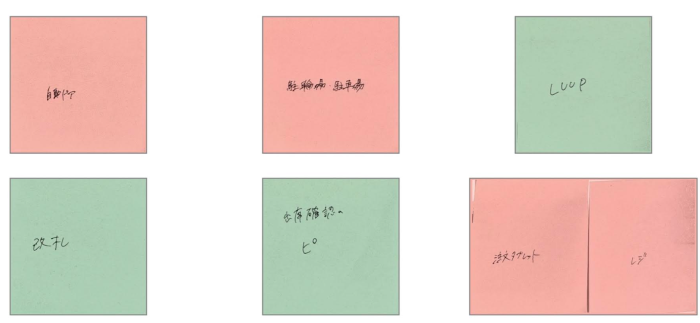 自動ドア
駐輪場・駐車場
LUUP
改札
在庫確認の
ピ
注文タブレット
レジ